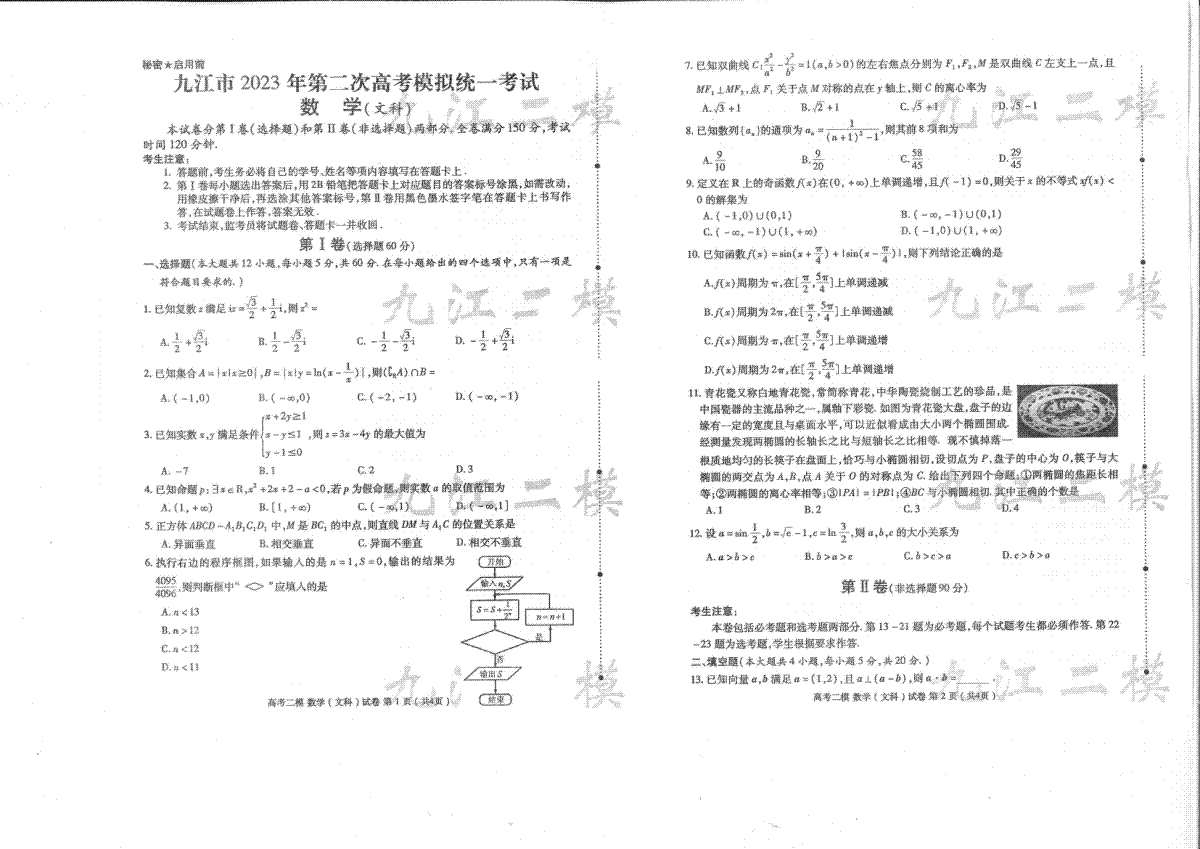 秘密★启用前
九江市 2023 年第二次高考模拟统一考试
数 学(文科)
本试卷分第Ⅰ卷(选择题)和第Ⅱ卷(非选择题)两部分.全卷满分150分,考试
时间120分钟.
考生注意:
1. 答题前,考生务必将自己的学号、姓名等项内容填写在答题卡上.
2. 第Ⅰ卷每小题选出答案后,用2B铅笔把答题卡上对应题目的答案标号涂黑,如需改动,
用橡皮擦干净后,再选涂其他答案标号,第Ⅱ卷用黑色墨水签字笔在答题卡上书写作
答.在试题卷上作答,答案无效.
3. 考试结束,监考员将试题卷、答题卡一并收回.
第Ⅰ卷(选择题60分)
一、选择题(本大题共12小题,每小题5分,共60分.在每小题给出的四个选项中,只有一项是
符合题目要求的.)
1. 已知复数z满足iz=√3/2+1/2i,则z²=
A. 1/2+√3/2i B. 1/2-√3/2i C. -1/2-√3/2i D. -1/2+√3/2i
2. 已知集合A={x|x≥0},B={x|y=ln(x-1/x)},则(∁RA)∩B=
A. (-1,0) B. (-∞,0) C. (-2,-1) D. (-∞,-1)
3. 已知实数x,y满足条件{x+2y≥1 x-y≤1 y-1≤0,则z=3x-4y的最大值为
A. -7 B. 1 C. 2 D. 3
4. 已知命题p:∃x∈R,x²+2x+2-a<0,若p为假命题,则实数a的取值范围为
A. (1,+∞) B. [1,+∞) C. (-∞,1) D. (-∞,1]
5. 正方体ABCD-A₁B₁C₁D₁中,M是BC₁的中点,则直线DM与A₁C的位置关系是
A. 异面垂直 B. 相交垂直 C. 异面不垂直 D. 相交不垂直
6. 执行右边的程序框图,如果输入的是n=1,S=0,输出的结果为
4095/4096,则判断框中“◇”应填入的是
A. n<13
B. n>12
C. n<12
D. n<11
开始
输入n,S
S=S+1/2ⁿ
n=n+1
是
否
输出S
结束
高考二模 数学(文科)试卷 第1页(共4页)
7. 已知双曲线C:x²/a²-y²/b²=1(a,b>0)的左右焦点分别为F₁,F₂,M是双曲线C左支上一点,且
MF₁⊥MF₂,点F₁关于点M对称的点在y轴上,则C的离心率为
A. √3+1 B. √2+1 C. √5+1 D. √5-1
8. 已知数列{aₙ}的通项为aₙ=1/((n+1)²-1),则其前8项和为
A. 9/10 B. 9/20 C. 58/45 D. 29/45
9. 定义在R上的奇函数f(x)在(0,+∞)上单调递增,且f(-1)=0,则关于x的不等式xf(x)<
0的解集为
A. (-1,0)∪(0,1) B. (-∞,-1)∪(0,1)
C. (-∞,-1)∪(1,+∞) D. (-1,0)∪(1,+∞)
10. 已知函数f(x)=sin(x+π/4)+|sin(x-π/4)|,则下列结论正确的是
A. f(x)周期为π,在[π/2,5π/4]上单调递减
B. f(x)周期为2π,在[π/2,5π/4]上单调递减
C. f(x)周期为π,在[π/2,5π/4]上单调递增
D. f(x)周期为2π,在[π/2,5π/4]上单调递增
11. 青花瓷又称白地青花瓷,常简称青花,中华陶瓷烧制工艺的珍品,是
中国瓷器的主流品种之一,属釉下彩瓷.如图为青花瓷大盘,盘子的边
缘有一定的宽度且与桌面水平,可以近似看成由大小两个椭圆围成.
经测量发现两椭圆的长轴长之比与短轴长之比相等.现不慎掉落一
根质地均匀的长筷子在盘面上,恰巧与小椭圆相切,设切点为P,盘子的中心为O,筷子与大
椭圆的两交点为A,B,点A关于O的对称点为C.给出下列四个命题:①两椭圆的焦距长相
等;②两椭圆的离心率相等;③|PA|=|PB|;④BC与小椭圆相切.其中正确的个数是
A. 1 B. 2 C. 3 D. 4
12. 设a=sin 1/2,b=√e-1,c=ln 3/2,则a,b,c的大小关系为
A. a>b>c B. b>a>c C. b>c>a D. c>b>a
第Ⅱ卷(非选择题90分)
考生注意:
本卷包括必考题和选考题两部分.第13-21题为必考题,每个试题考生都必须作答.第22
-23题为选考题,学生根据要求作答.
二、填空题(本大题共4小题,每小题5分,共20分.)
13. 已知向量a,b满足a=(1,2),且a⊥(a-b),则a·b=____.
高考二模 数学(文科)试卷 第2页(共4页)
九江二模
九江二模
九江二模
九江二模
九江二模
九江二模
九江二模
九江二模